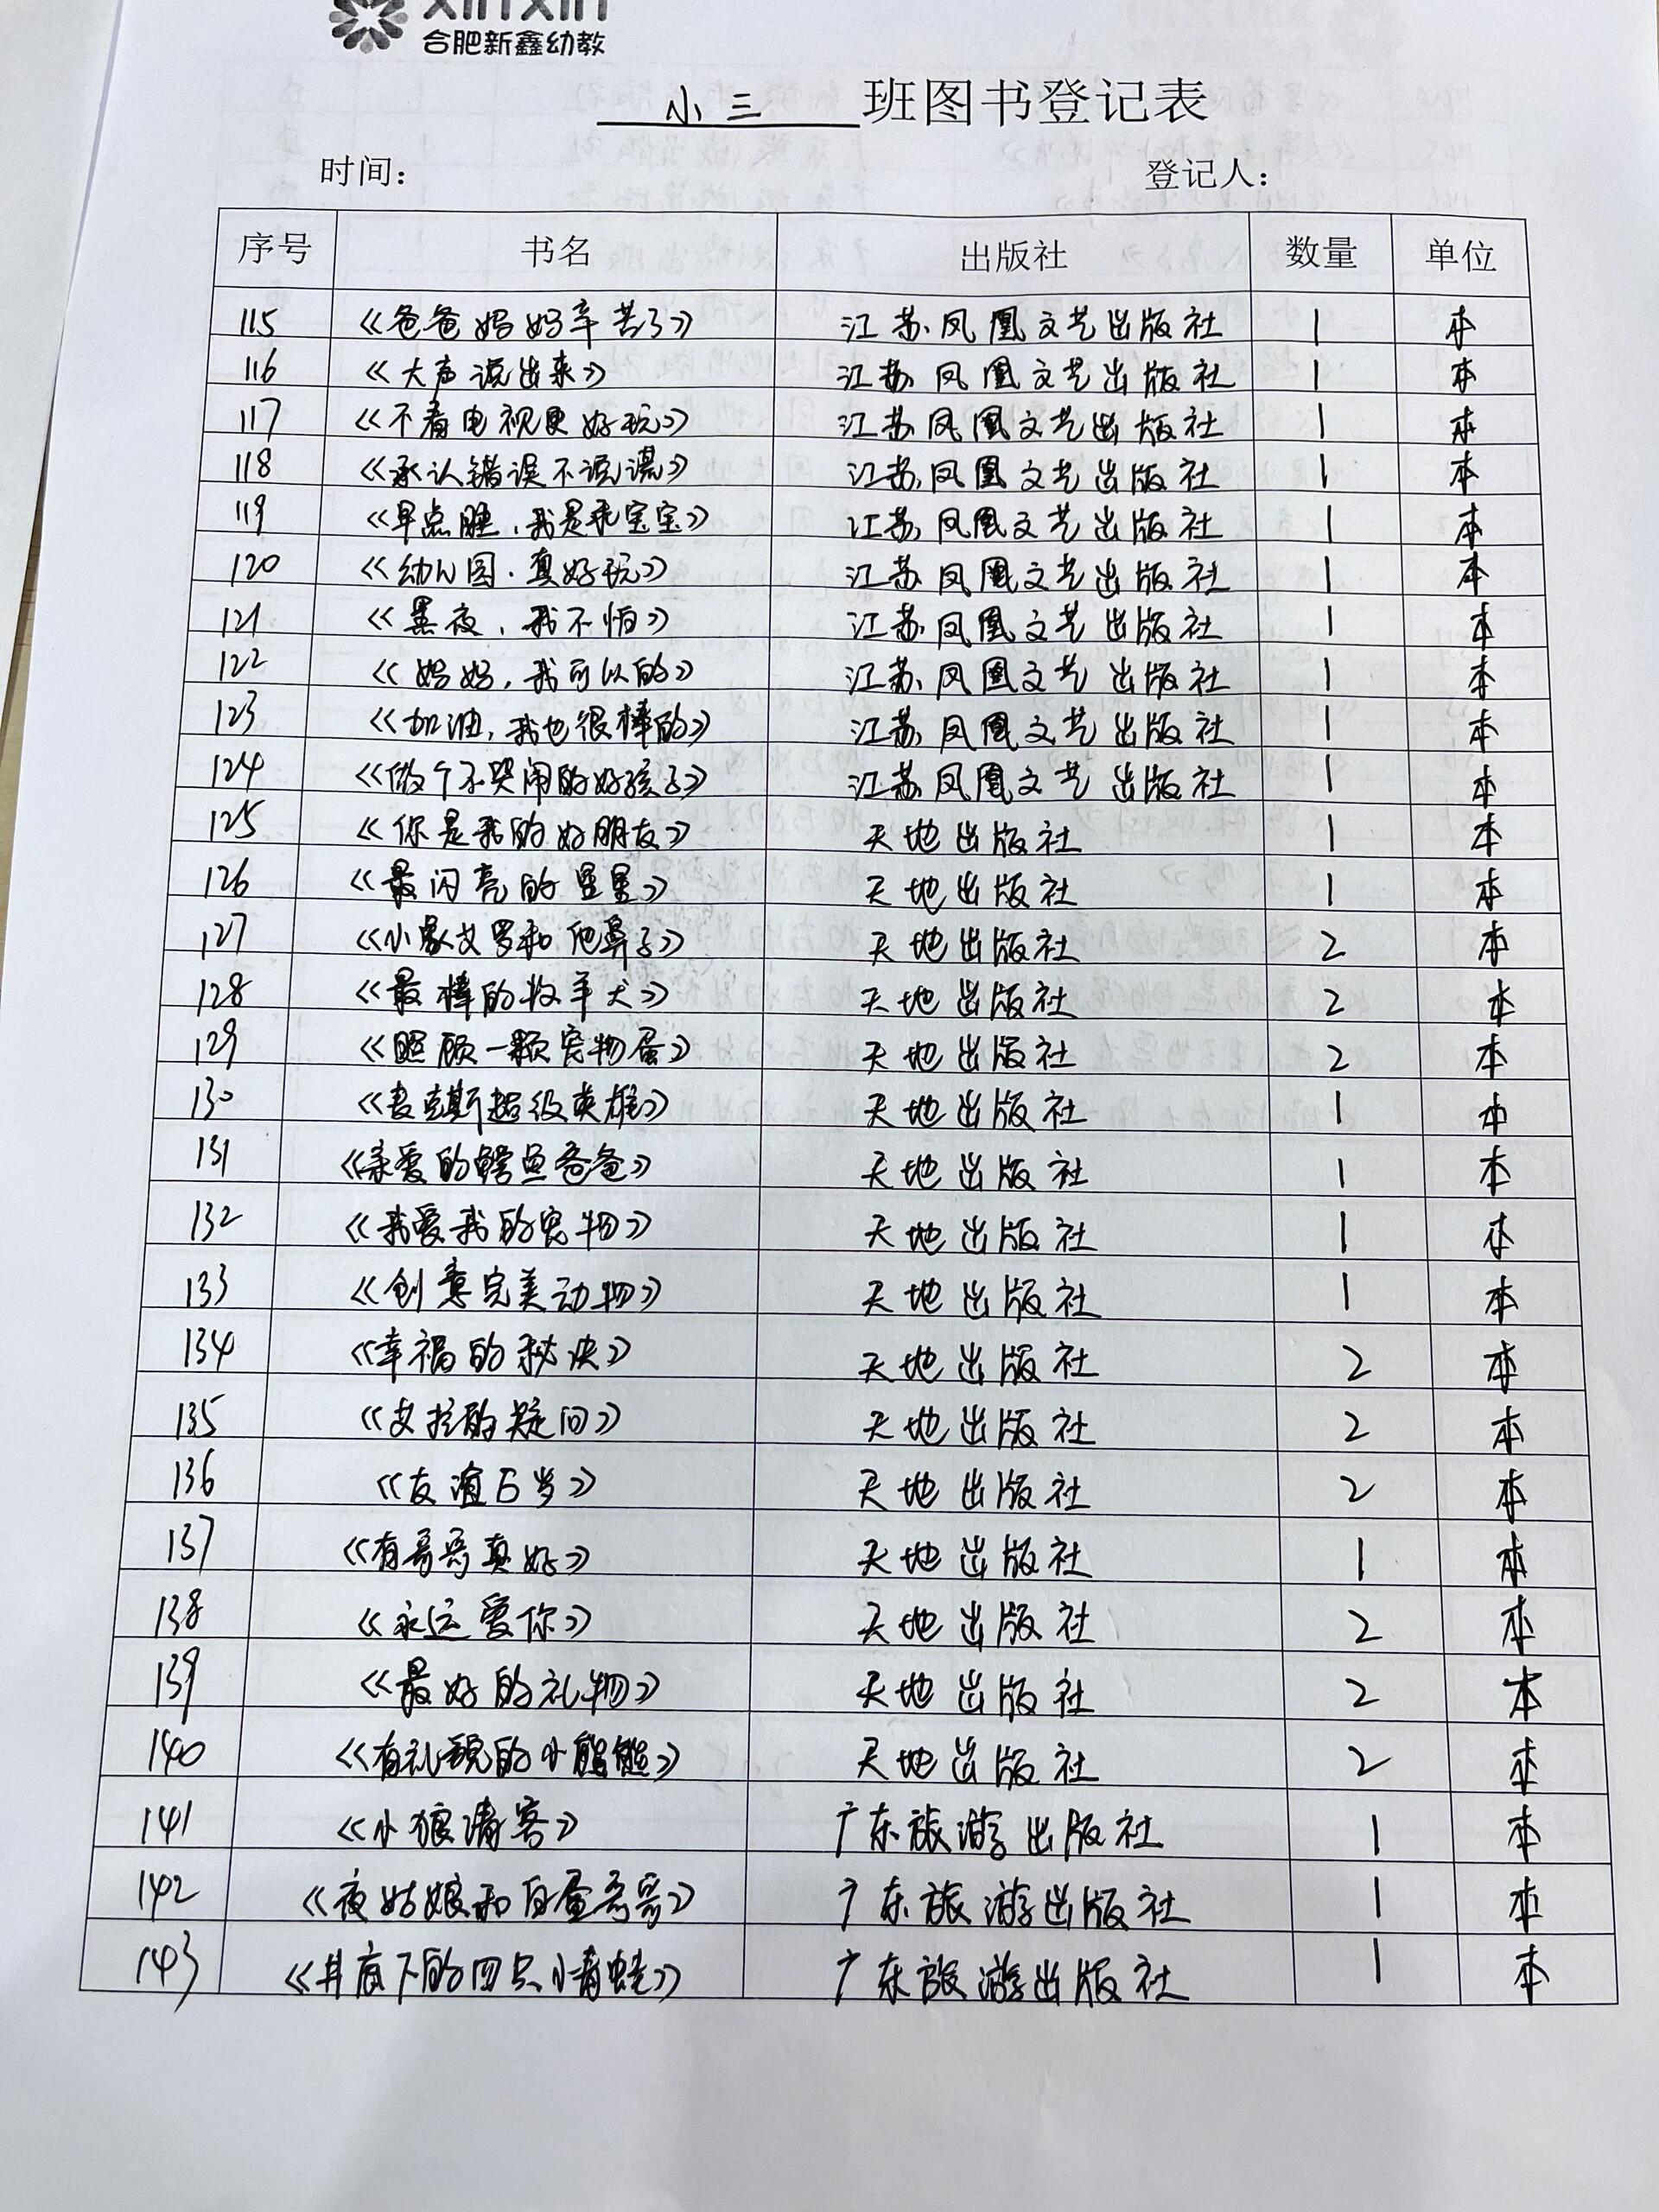 XinXin
合肥新鑫幼教
小三 班图书登记表
时间： 登记人：
序号 书名 出版社 数量 单位
115 《爸爸妈妈辛苦了》 江苏凤凰文艺出版社 1 本
116 《大声说出来》 江苏凤凰文艺出版社 1 本
117 《不看电视更好玩》 江苏凤凰文艺出版社 1 本
118 《承认错误不说谎》 江苏凤凰文艺出版社 1 本
119 《早点睡，我是乖宝宝》 江苏凤凰文艺出版社 1 本
120 《幼儿园，真好玩》 江苏凤凰文艺出版社 1 本
121 《黑夜，我不怕》 江苏凤凰文艺出版社 1 本
122 《妈妈，我可以的》 江苏凤凰文艺出版社 1 本
123 《加油，我也很棒的》 江苏凤凰文艺出版社 1 本
124 《做个不哭闹的好孩子》 江苏凤凰文艺出版社 1 本
125 《你是我的好朋友》 天地出版社 1 本
126 《最闪亮的星星》 天地出版社 1 本
127 《小象艾罗和他鼻子》 天地出版社 2 本
128 《最棒的牧羊犬》 天地出版社 2 本
129 《照顾一颗宠物蛋》 天地出版社 2 本
130 《麦克斯超级英雄》 天地出版社 1 本
131 《亲爱的鳄鱼爸爸》 天地出版社 1 本
132 《我爱我的宠物》 天地出版社 1 本
133 《创意完美动物》 天地出版社 1 本
134 《幸福的秘诀》 天地出版社 2 本
135 《艾拉的疑问》 天地出版社 2 本
136 《友谊万岁》 天地出版社 2 本
137 《有哥哥真好》 天地出版社 1 本
138 《永远爱你》 天地出版社 2 本
139 《最好的礼物》 天地出版社 2 本
140 《有礼貌的小熊熊》 天地出版社 2 本
141 《小狼请客》 广东旅游出版社 1 本
142 《夜姑娘和白昼哥哥》 广东旅游出版社 1 本
143 《井底下的四只小青蛙》 广东旅游出版社 1 本